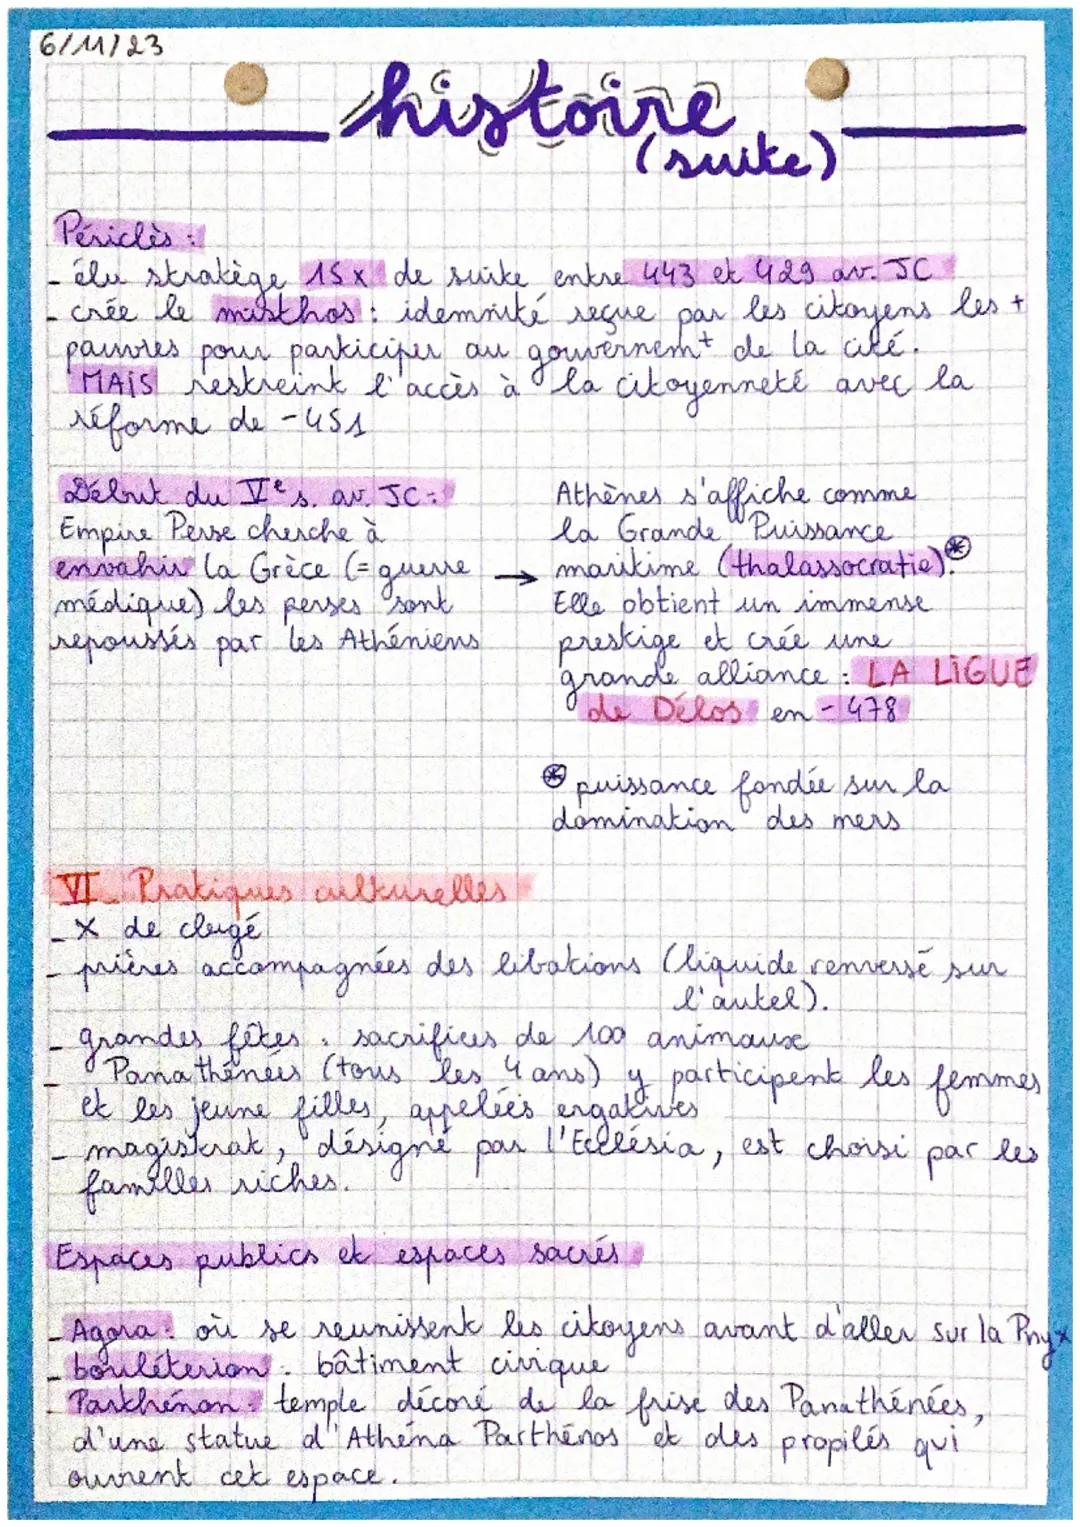 6/11/23
histoire
(suite)
Périclès :
- élu stratège 15x de suite entre 443 et 429 av. JC
- crée le misthos : idemnité reçue par les citoyens les +
pauvres pour participer au gouvernem^t de la cité.
MAIS restreint l'accès à la citoyenneté avec la
réforme de -451
Début du V^e s. av. JC :
Empire Perse cherche à
envahir la Grèce (= guerre
médique) les perses sont
repoussés par les Athéniens
→ Athènes s'affiche comme
la Grande Puissance
maritime (thalassocratie).⊛
Elle obtient un immense
prestige et crée une
grande alliance : LA LIGUE
de Délos en - 478
⊛ puissance fondée sur la
domination des mers
VI_ Pratiques culturelles
- X de clergé
- prières accompagnées des libations (liquide renversé sur
l'autel).
- grandes fêtes : sacrifices de 100 animaux
- Panathénées (tous les 4 ans) y participent les femmes
et les jeune filles, appelées ergatives
- magistrat, désigné par l'Ecclésia, est choisi par les
familles riches.
Espaces publics et espaces sacrés
- Agora : où se reunissent les citoyens avant d'aller sur la Pnyx
- bouléterion : bâtiment civique
- Parthénon : temple décoré de la frise des Panathénées,
d'une statue d'Athéna Parthénos et des propilés qui
ouvrent cet espace.